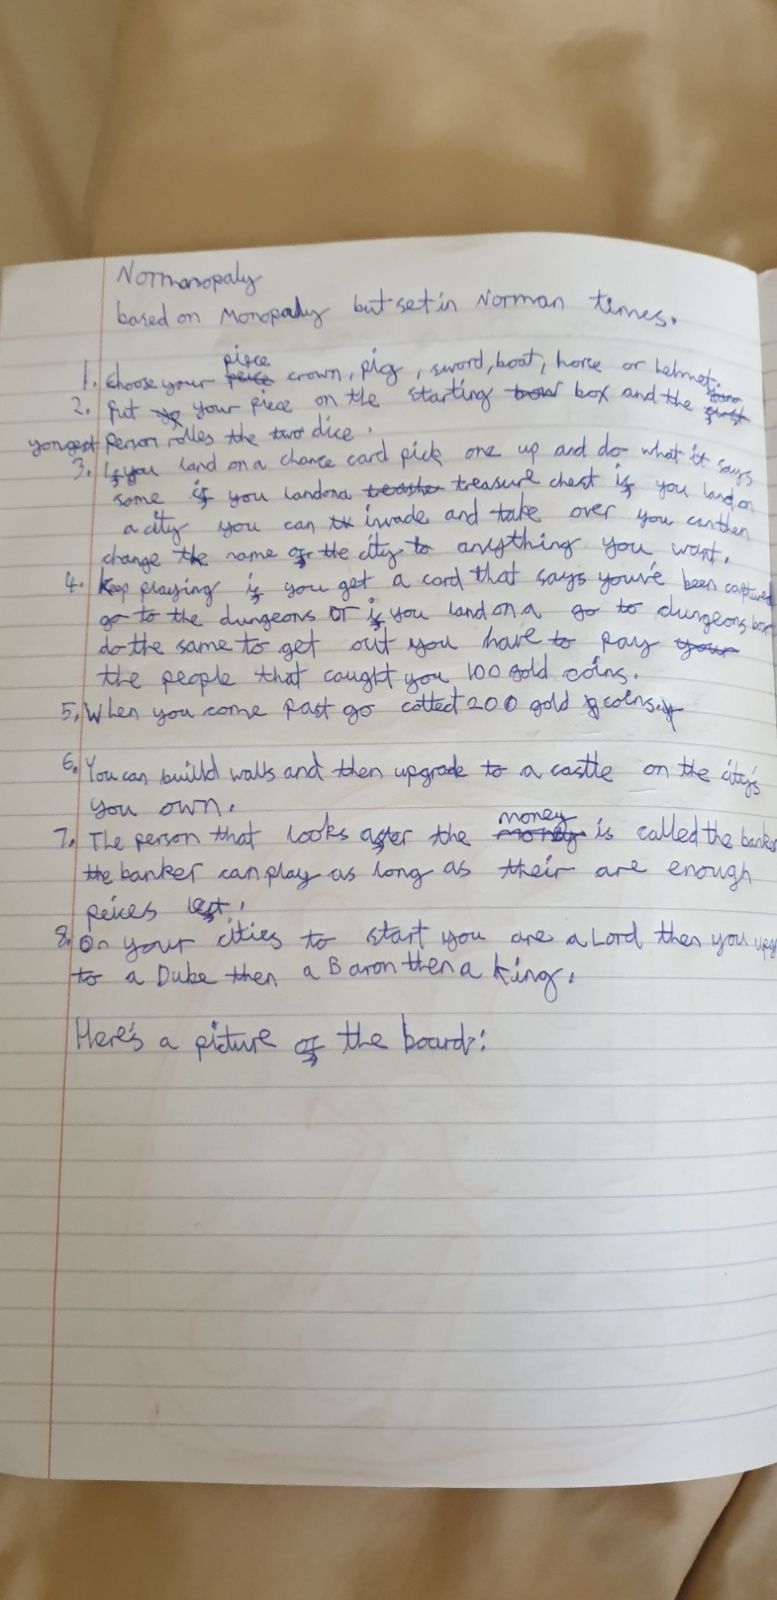 Normanopaly
based on Monopaly but set in Norman times.
1. choose your piece crown, pig, sword, boat, horse or helmet.
2. Put your piece on the starting box and the
yongest person rolles the dice.
3. If you land on a chance card pick one up and do what it says
same if you land on a treasure chest if you land on
a city you can invade and take over you can then
change the name of the city to anything you want.
4. Keep playing if you get a card that says youv'e been captured
go to the dungeons or if you land on a go to dungeons box
do the same to get out you have to pay
the people that caught you 100 gold coins.
5. When you come past go collect 200 gold coins.
6. You can build walls and then upgrade to a castle on the city's
you own.
7. The person that looks after the money is called the banker
the banker can play as long as their are enough
peices left.
8. On your cities to start you are a Lord then you upg
to a Duke then a Baron then a king.
Here's a picture of the board: